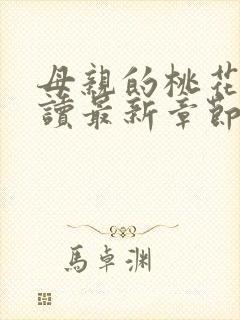 母親的桃花
讀最新章節
馬卓渊